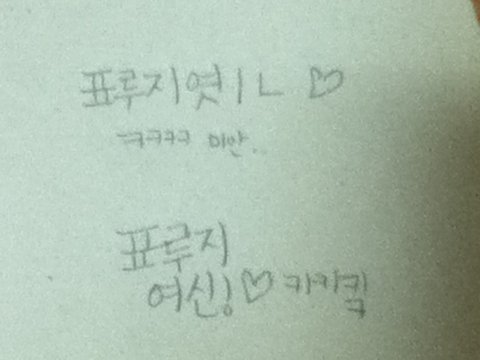 표루지엿ㅣㄴ ♡
ㅋㅋㅋㅋ 미안.
표루지
여신! ♡ 키키킥